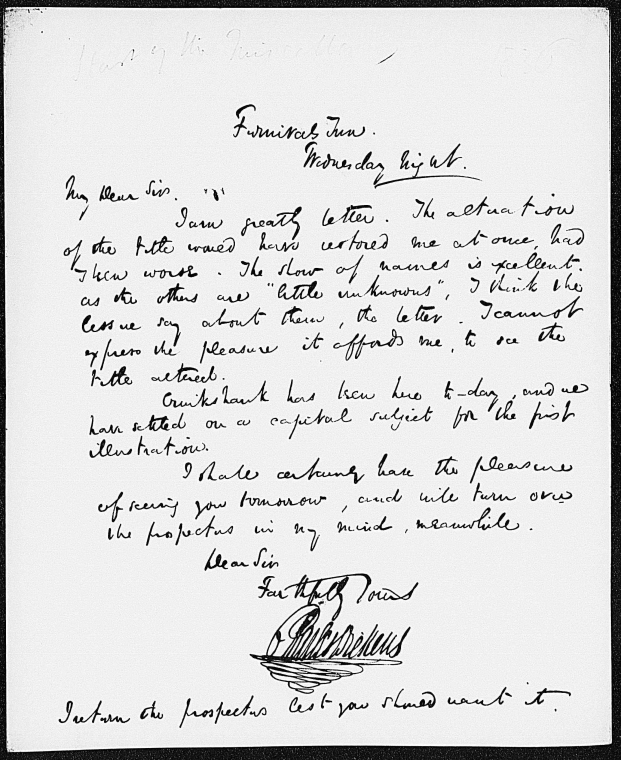 Furnivals Inn.
Wednesday Night.
My Dear Sir.
I am greatly better. The alteration
of the title would have restored me at once, had
I been worse. The show of names is excellent.
as the others are "little unknowns", I think the
less we say about them, the better. I cannot
express the pleasure it affords me, to see the
title altered.
Cruikshank has been here to-day, and we
have settled on a capital subject for the first
illustration.
I shall certainly have the pleasure
of seeing you tomorrow, and will turn over
the prospectus in my mind, meanwhile.
Dear Sir
Faithfully Yours
Charles Dickens
I return the prospectus lest you should want it.